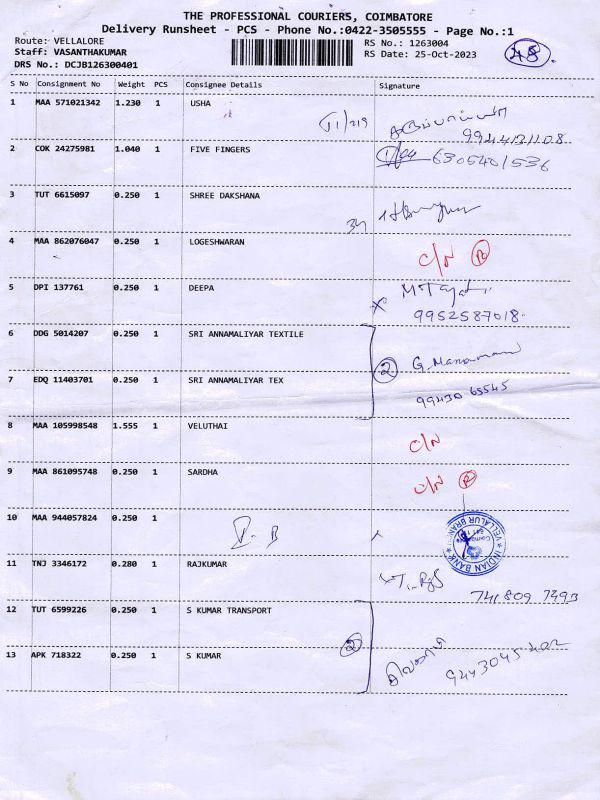 THE PROFESSIONAL COURIERS, COIMBATORE
Delivery Runsheet - PCS - Phone No.:0422-3505555 - Page No.:1
Route: VELLALORE RS No.: 1263004
Staff: VASANTHAKUMAR RS Date: 25-Oct-2023
DRS No.: DCJB126300401
48
S No Consignment No Weight PCS Consignee Details Signature
1 MAA 571021342 1.230 1 USHA
9944131108
2 COK 24275981 1.040 1 FIVE FINGERS 6305401536
3 TUT 6615097 0.250 1 SHREE DAKSHANA
4 MAA 862076047 0.250 1 LOGESHWARAN C/N
5 DPI 137761 0.250 1 DEEPA
9952587018
6 DDG 5014207 0.250 1 SRI ANNAMALIYAR TEXTILE
2
7 EDQ 11403701 0.250 1 SRI ANNAMALIYAR TEX 99430 65545
8 MAA 105998548 1.555 1 VELUTHAI C/N
9 MAA 861095748 0.250 1 SARDHA C/N
10 MAA 944057824 0.250 1 I.B
INDIAN BANK VELLALUR BRANCH
11 TNJ 3346172 0.280 1 RAJKUMAR
741 809 7493
12 TUT 6599226 0.250 1 S KUMAR TRANSPORT
2
13 APK 718322 0.250 1 S KUMAR 9443045402